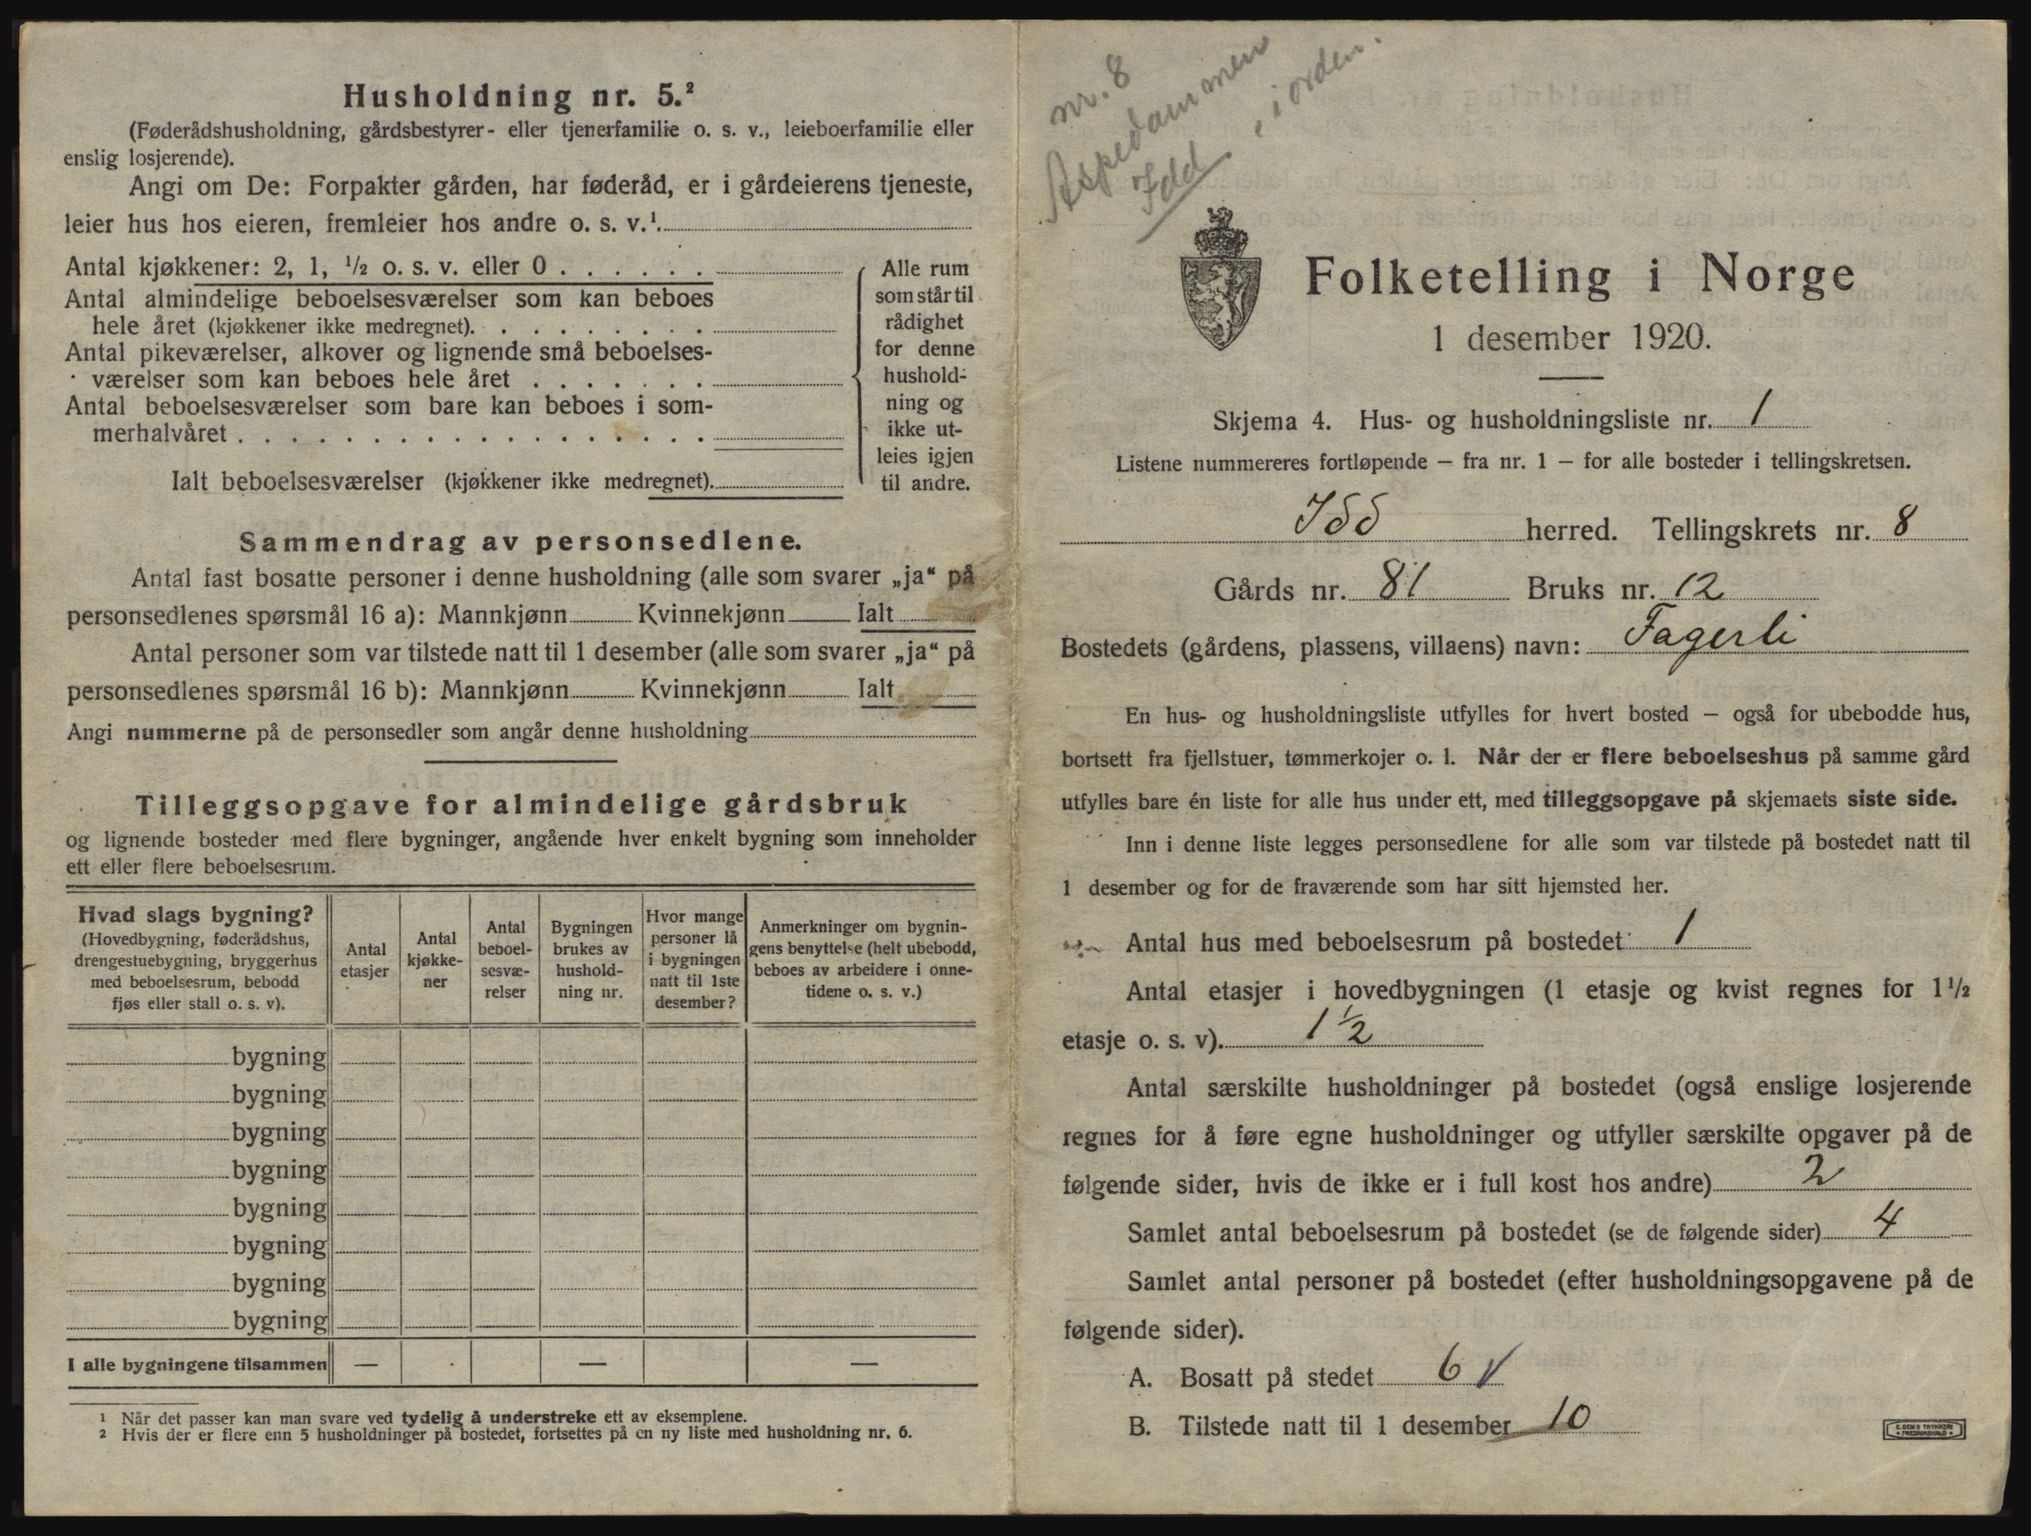 Husholdning nr. 5.²
(Føderådshusholdning, gårdsbestyrer- eller tjenerfamilie o. s. v., leieboerfamilie eller
enslig losjerende).
Angi om De: Forpakter gården, har føderåd, er i gårdeierens tjeneste,
leier hus hos eieren, fremleier hos andre o. s. v.¹.
Antal kjøkkener: 2, 1, ½ o. s. v. eller 0 . . . . . .
Antal almindelige beboelsesværelser som kan beboes
hele året (kjøkkener ikke medregnet). . . . . . . . .
Antal pikeværelser, alkover og lignende små beboelses-
værelser som kan beboes hele året . . . . . . .
Antal beboelsesværelser som bare kan beboes i som-
merhalvåret . . . . . . . . . . . . . . . . . .
Ialt beboelsesværelser (kjøkkener ikke medregnet).
Alle rum
som står til
rådighet
for denne
hushold-
ning og
ikke ut-
leies igjen
til andre.
Sammendrag av personsedlene.
Antal fast bosatte personer i denne husholdning (alle som svarer „ja“ på
personsedlenes spørsmål 16 a): Mannkjønn Kvinnekjønn Ialt
Antal personer som var tilstede natt til 1 desember (alle som svarer „ja“ på
personsedlenes spørsmål 16 b): Mannkjønn Kvinnekjønn Ialt
Angi nummerne på de personsedler som angår denne husholdning
Tilleggsopgave for almindelige gårdsbruk
og lignende bosteder med flere bygninger, angående hver enkelt bygning som inneholder
ett eller flere beboelsesrum.
Hvad slags bygning?
(Hovedbygning, føderådshus,
drengestuebygning, bryggerhus
med beboelsesrum, bebodd
fjøs eller stall o. s. v).
Antal
etasjer
Antal
kjøkke-
ner
Antal
beboel-
sesvæ-
relser
Bygningen
brukes av
hushold-
ning nr.
Hvor mange
personer lå
i bygningen
natt til 1ste
desember?
Anmerkninger om bygnin-
gens benyttelse (helt ubebodd,
beboes av arbeidere i onne-
tidene o. s. v.)
bygning
bygning
bygning
bygning
bygning
bygning
bygning
bygning
I alle bygningene tilsammen — — —
¹ Når det passer kan man svare ved tydelig å understreke ett av eksemplene.
² Hvis der er flere enn 5 husholdninger på bostedet, fortsettes på en ny liste med husholdning nr. 6.
nr. 8
Aspedammen
Idd, i orden.
Folketelling i Norge
1 desember 1920.
Skjema 4. Hus- og husholdningsliste nr. 1
Listene nummereres fortløpende – fra nr. 1 – for alle bosteder i tellingskretsen.
Idd herred. Tellingskrets nr. 8
Gårds nr. 81 Bruks nr. 12
Bostedets (gårdens, plassens, villaens) navn: Fagerli
En hus- og husholdningsliste utfylles for hvert bosted – også for ubebodde hus,
bortsett fra fjellstuer, tømmerkojer o. l. Når der er flere beboelseshus på samme gård
utfylles bare én liste for alle hus under ett, med tilleggsopgave på skjemaets siste side.
Inn i denne liste legges personsedlene for alle som var tilstede på bostedet natt til
1 desember og for de fraværende som har sitt hjemsted her.
Antal hus med beboelsesrum på bostedet 1
Antal etasjer i hovedbygningen (1 etasje og kvist regnes for 1½
etasje o. s. v). 1½
Antal særskilte husholdninger på bostedet (også enslige losjerende
regnes for å føre egne husholdninger og utfyller særskilte opgaver på de
følgende sider, hvis de ikke er i full kost hos andre) 2
Samlet antal beboelsesrum på bostedet (se de følgende sider) 4
Samlet antal personer på bostedet (efter husholdningsopgavene på de
følgende sider).
A. Bosatt på stedet 6 √
B. Tilstede natt til 1 desember 10
E. SEMS TRYKKERI
FREDRIKSHALD